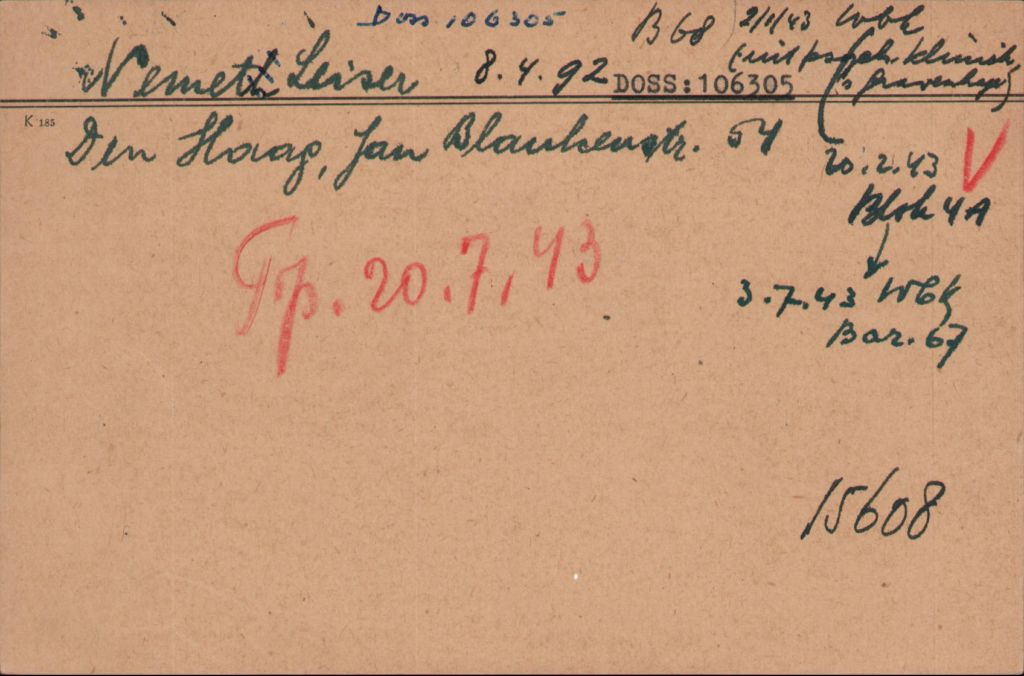 Doss 106305
B 68 2/1/43 Wbk
(uit psych. kliniek,
's Gravenhage)
Nemeth Leiser 8.4.92 DOSS:106305
K 185
Den Haag, Jan Blankenstr. 54
20.2.43 V
Blok 4A
Tp. 20.7.43
3.7.43 Wbk
Bar. 67
15608